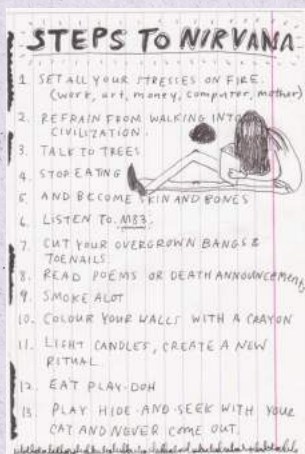 STEPS TO NIRVANA
1. SET ALL YOUR STRESSES ON FIRE.
(work, art, money, computer, mother)
2. REFRAIN FROM WALKING INTO
CIVILIZATION.
3. TALK TO TREES
4. STOP EATING
5. AND BECOME SKIN AND BONES
6. LISTEN TO M83.
7. CUT YOUR OVERGROWN BANGS &
TOENAILS.
8. READ POEMS OR DEATH ANNOUNCEMENTS
9. SMOKE ALOT
10. COLOUR YOUR WALLS WITH A CRAYON
11. LIGHT CANDLES, CREATE A NEW
RITUAL
12. EAT PLAY-DOH
13. PLAY HIDE-AND-SEEK WITH YOUR
CAT AND NEVER COME OUT.